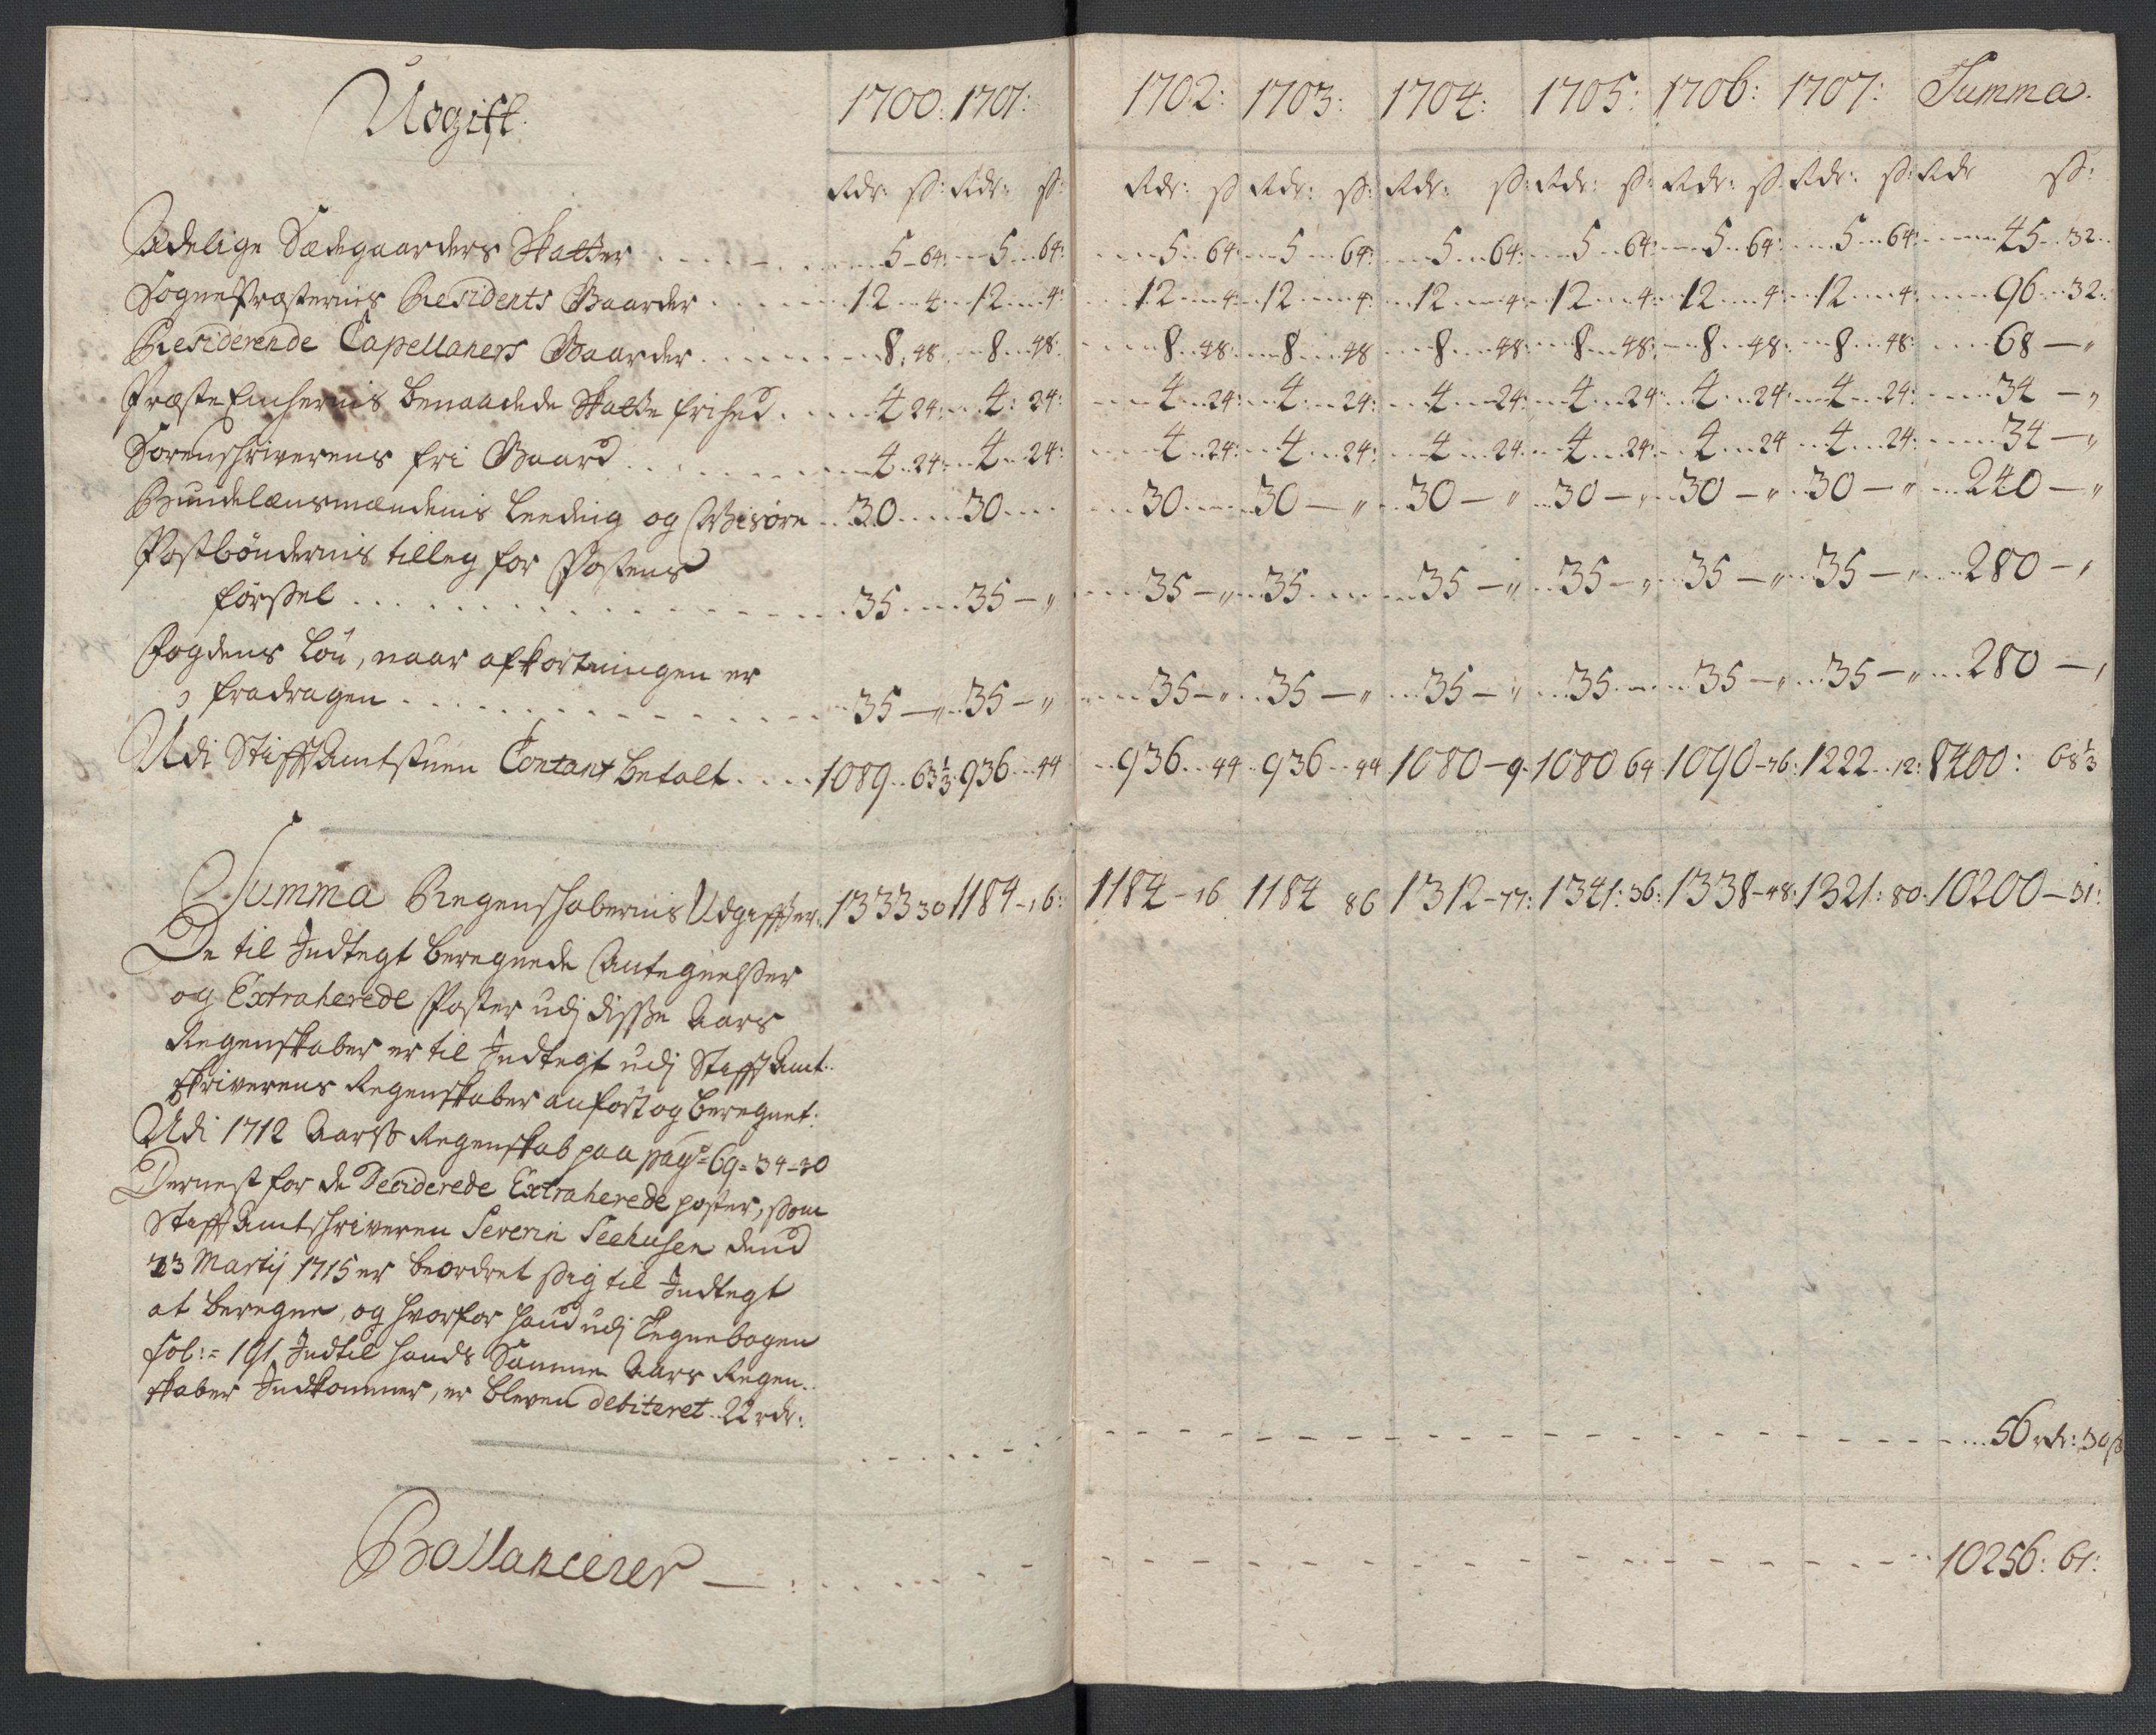 Udgift. 1700: 1701: 1702: 1703: 1704: 1705: 1706: 1707: Summa.
Rdr: ß: Rdr: ß: Rdr: ß Rdr: ß: Rdr: ß: Rdr: ß: Rdr: ß. Rdr: ß: Rdr ß:
Adelige Sædegaarders Skatter 5 64: 5 64: 5 64: 5 64: 5 64: 5 64: 5 64: 5 64: 45 32
SognePræsternis Residents Gaarder 12 4 12 4: 12 4 12 4: 12 4: 12 4: 12 4: 12 4: 96 32:
Residerende Capellaners Gaarder 8, 48 8 48: 8 48: 8 48 8 48: 8 48: 8 48: 8 48: 68 — „
PræsteEnchernis benaadede Skatte frihed 4 24: 4: 24: 4 24: 4 24: 4 24: 4 24: 4 24: 4 24: 34 — „
Sorenschriverens fri Gaard 4 24: 4 24: 4 24: 4 24: 4 24 4 24: 4 24 4 24: 34 — „
Bundelænsmændenis Leeding og Wisøre 30 30 30 30 — „ 30 — „ 30 — „ 30 — „ 30 — „ 240 — „
Postbøndernis tilleg for Postens
førssel 35 35 — „ 35 — „ 35 35 — „ 35 — „ 35 — „ 35 — „ 280 — „
Fogdens Løn, naar afkortningen er
fradragen 35 — „ 35 — „ 35 — „ 35 — „ 35 — „ 35 35 — „ 35 — „ 280 — „
Udi StifftAmtstuen Contant betalt 1089 63 1/3 936 44 936 44 936 44 1080 — 9 1080 64 1090 - 76: 1222 12: 8400: 68 1/3
Summa Regenschabernis Udgiffter: 1333 30 1184 - 16: 1184 - 16 1184 86 1312 - 77: 1341: 36: 1338 - 48: 1321: 80: 10200 — 31:
De til Indtegt beregnede Antegnelsser
og Extraherede Poster udj disse Aars
Regenskaber er til Indtegt udj StifftAmt-
skriverens Regenskaber anført og beregnet:
Udi 1712 Aarss Regenskab paa pag: 69 = 34 - 30
Dernest for de Deciderede Extraherede poster, som
StifftAmtschriveren Severin Seehusen dend
23 Martij 1715 er beordret sig til Indtegt
at beregne, og hvorfor hand udj Tegnebogen
fol: = 191 Indtil hands Samme Aars Regen-
skaber Indkommer, er bleven debiteret 22 rdr:
56 rdr: 30 ß
Ballancerer — 10256: 61: